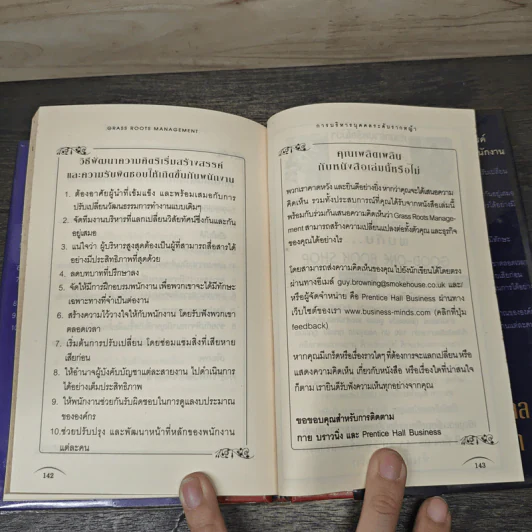 GRASS ROOTS MANAGEMENT
วิธีพัฒนาความคิดริเริ่มสร้างสรรค์
และความรับผิดชอบให้เกิดขึ้นกับพนักงาน
1. ต้องอาศัยผู้นำที่เข้มแข็ง และพร้อมเสมอกับการ
ปรับเปลี่ยนวัฒนธรรมการทำงานแบบเดิมๆ
2. จัดทีมงานบริหารที่แลกเปลี่ยนวิสัยทัศน์ซึ่งกันและกัน
อยู่เสมอ
3. แน่ใจว่า ผู้บริหารสูงสุดต้องเป็นผู้ที่สามารถสื่อสารได้
อย่างมีประสิทธิภาพที่สุดด้วย
4. ลดบทบาทที่ปรึกษาลง
5. จัดให้มีการฝึกอบรมพนักงาน เพื่อพวกเขาจะได้มีทักษะ
เฉพาะทางที่จำเป็นต่องาน
6. สร้างความไว้วางใจให้กับพนักงาน โดยรับฟังพวกเขา
ตลอดเวลา
7. เริ่มต้นการปรับเปลี่ยน โดยซ่อมแซมสิ่งที่เสียหาย
เสียก่อน
8. ให้อำนาจผู้บังคับบัญชาแต่ละสายงาน ไปดำเนินการ
ได้อย่างเต็มประสิทธิภาพ
9. ให้พนักงานช่วยกันรับผิดชอบในการดูแลงบประมาณ
ขององค์กร
10.ช่วยปรับปรุง และพัฒนาหน้าที่หลักของพนักงาน
แต่ละคน
142
การบริหารบุคคลระดับรากหญ้า
คุณเพลิดเพลิน
กับหนังสือเล่มนี้หรือไม่
พวกเราคาดหวัง และยินดีอย่างยิ่ง หากว่าคุณจะได้เสนอความ
คิดเห็น รวมทั้งประสบการณ์ที่คุณได้รับจากหนังสือเล่มนี้
พร้อมกับร่วมกันเสนอความคิดเห็นว่า Grass Roots Manage-
ment สามารถสร้างความเปลี่ยนแปลงต่อทั้งตัวคุณ และธุรกิจ
ของคุณได้อย่างไร
โดยสามารถส่งความคิดเห็นของคุณ ไปยังนักเขียนได้โดยตรง
ผ่านทางอีเมล์ guy.browning@smokehouse.co.uk และ/
หรือผู้จัดจำหน่าย คือ Prentice Hall Business ผ่านทาง
เว็บไซต์ของเรา www.business-minds.com (คลิกที่ปุ่ม
feedback)
หากคุณมีเกร็ดหรือเรื่องราวใดๆ ที่ต้องการจะแลกเปลี่ยน หรือ
แสดงความคิดเห็น เกี่ยวกับหนังสือ หรือเรื่องใดที่น่าสนใจ
ก็ตาม เรายินดีรับฟังความเห็นทุกอย่างจากคุณ
ขอขอบคุณสำหรับการติดตาม
กาย บราวนิ่ง และ Prentice Hall Business
143